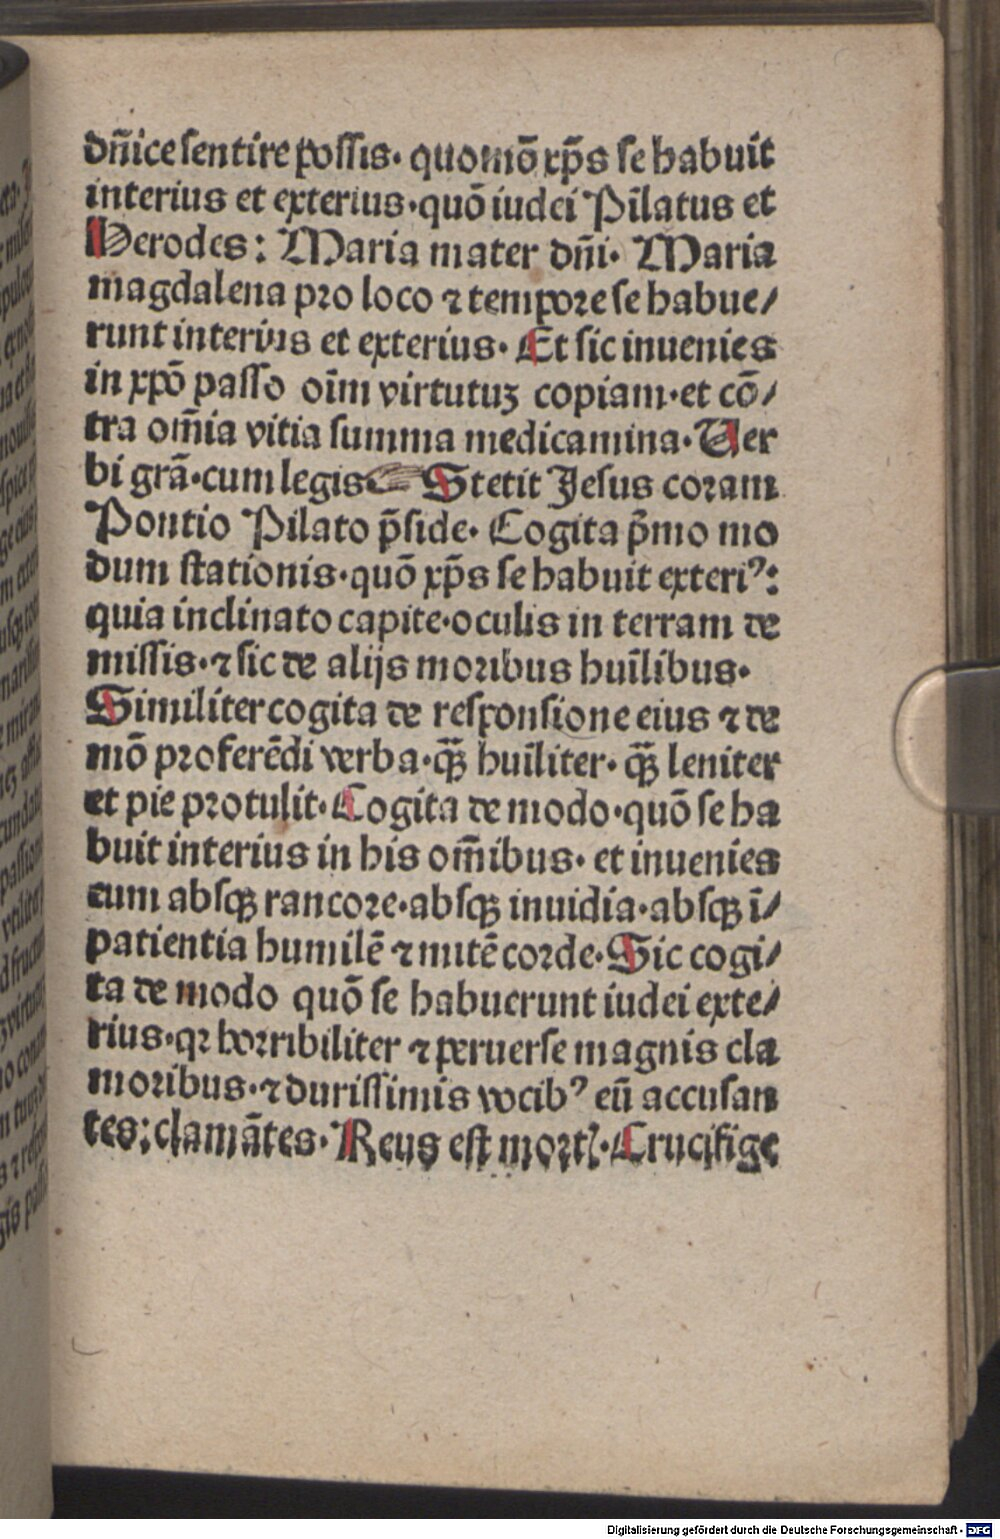 dñice sentire possis· quomō xp̄s se habuit
interius et exterius·quō iudei Pilatus et
Herodes: Maria mater dñi· Maria
magdalena pro loco ⁊ tempore se habue/
runt interius et exterius· Et sic inuenies
in xpō passo oīm virtutuꝫ copiam·et cō/
tra om̄ia vitia summa medicamina·Uer
bi grā·cum legis☞ Stetit Jesus coram
Pontio Pilato p̄side· Cogita p̄mo mo
dum stationis·quō xp̄s se habuit exteriꝰ:
quia inclinato capite·oculis in terram de
missis·⁊ sic de alijs moribus huīlibus·
Similiter cogita de responsione eius ⁊ de
mō proferēdi verba·q̄ꝫ huīliter· q̄ꝫ leniter
et pie protulit· Cogita de modo·quō se ha
buit interius in his om̄ibus· et inuenies
eum absqꝫ rancore·absqꝫ inuidia·absqꝫ ī/
patientia humilē ⁊ mitē corde·Sic cogi/
ta de modo quō se habuerunt iudei exte/
rius·qꝛ horribiliter ⁊ peruerse magnis cla
moribus·⁊ durissimis vocibꝰ eū accusan
tes:clamātes·Reus est mortꝭ·Crucifige
Digitalisierung gefördert durch die Deutsche Forschungsgemeinschaft · DFG